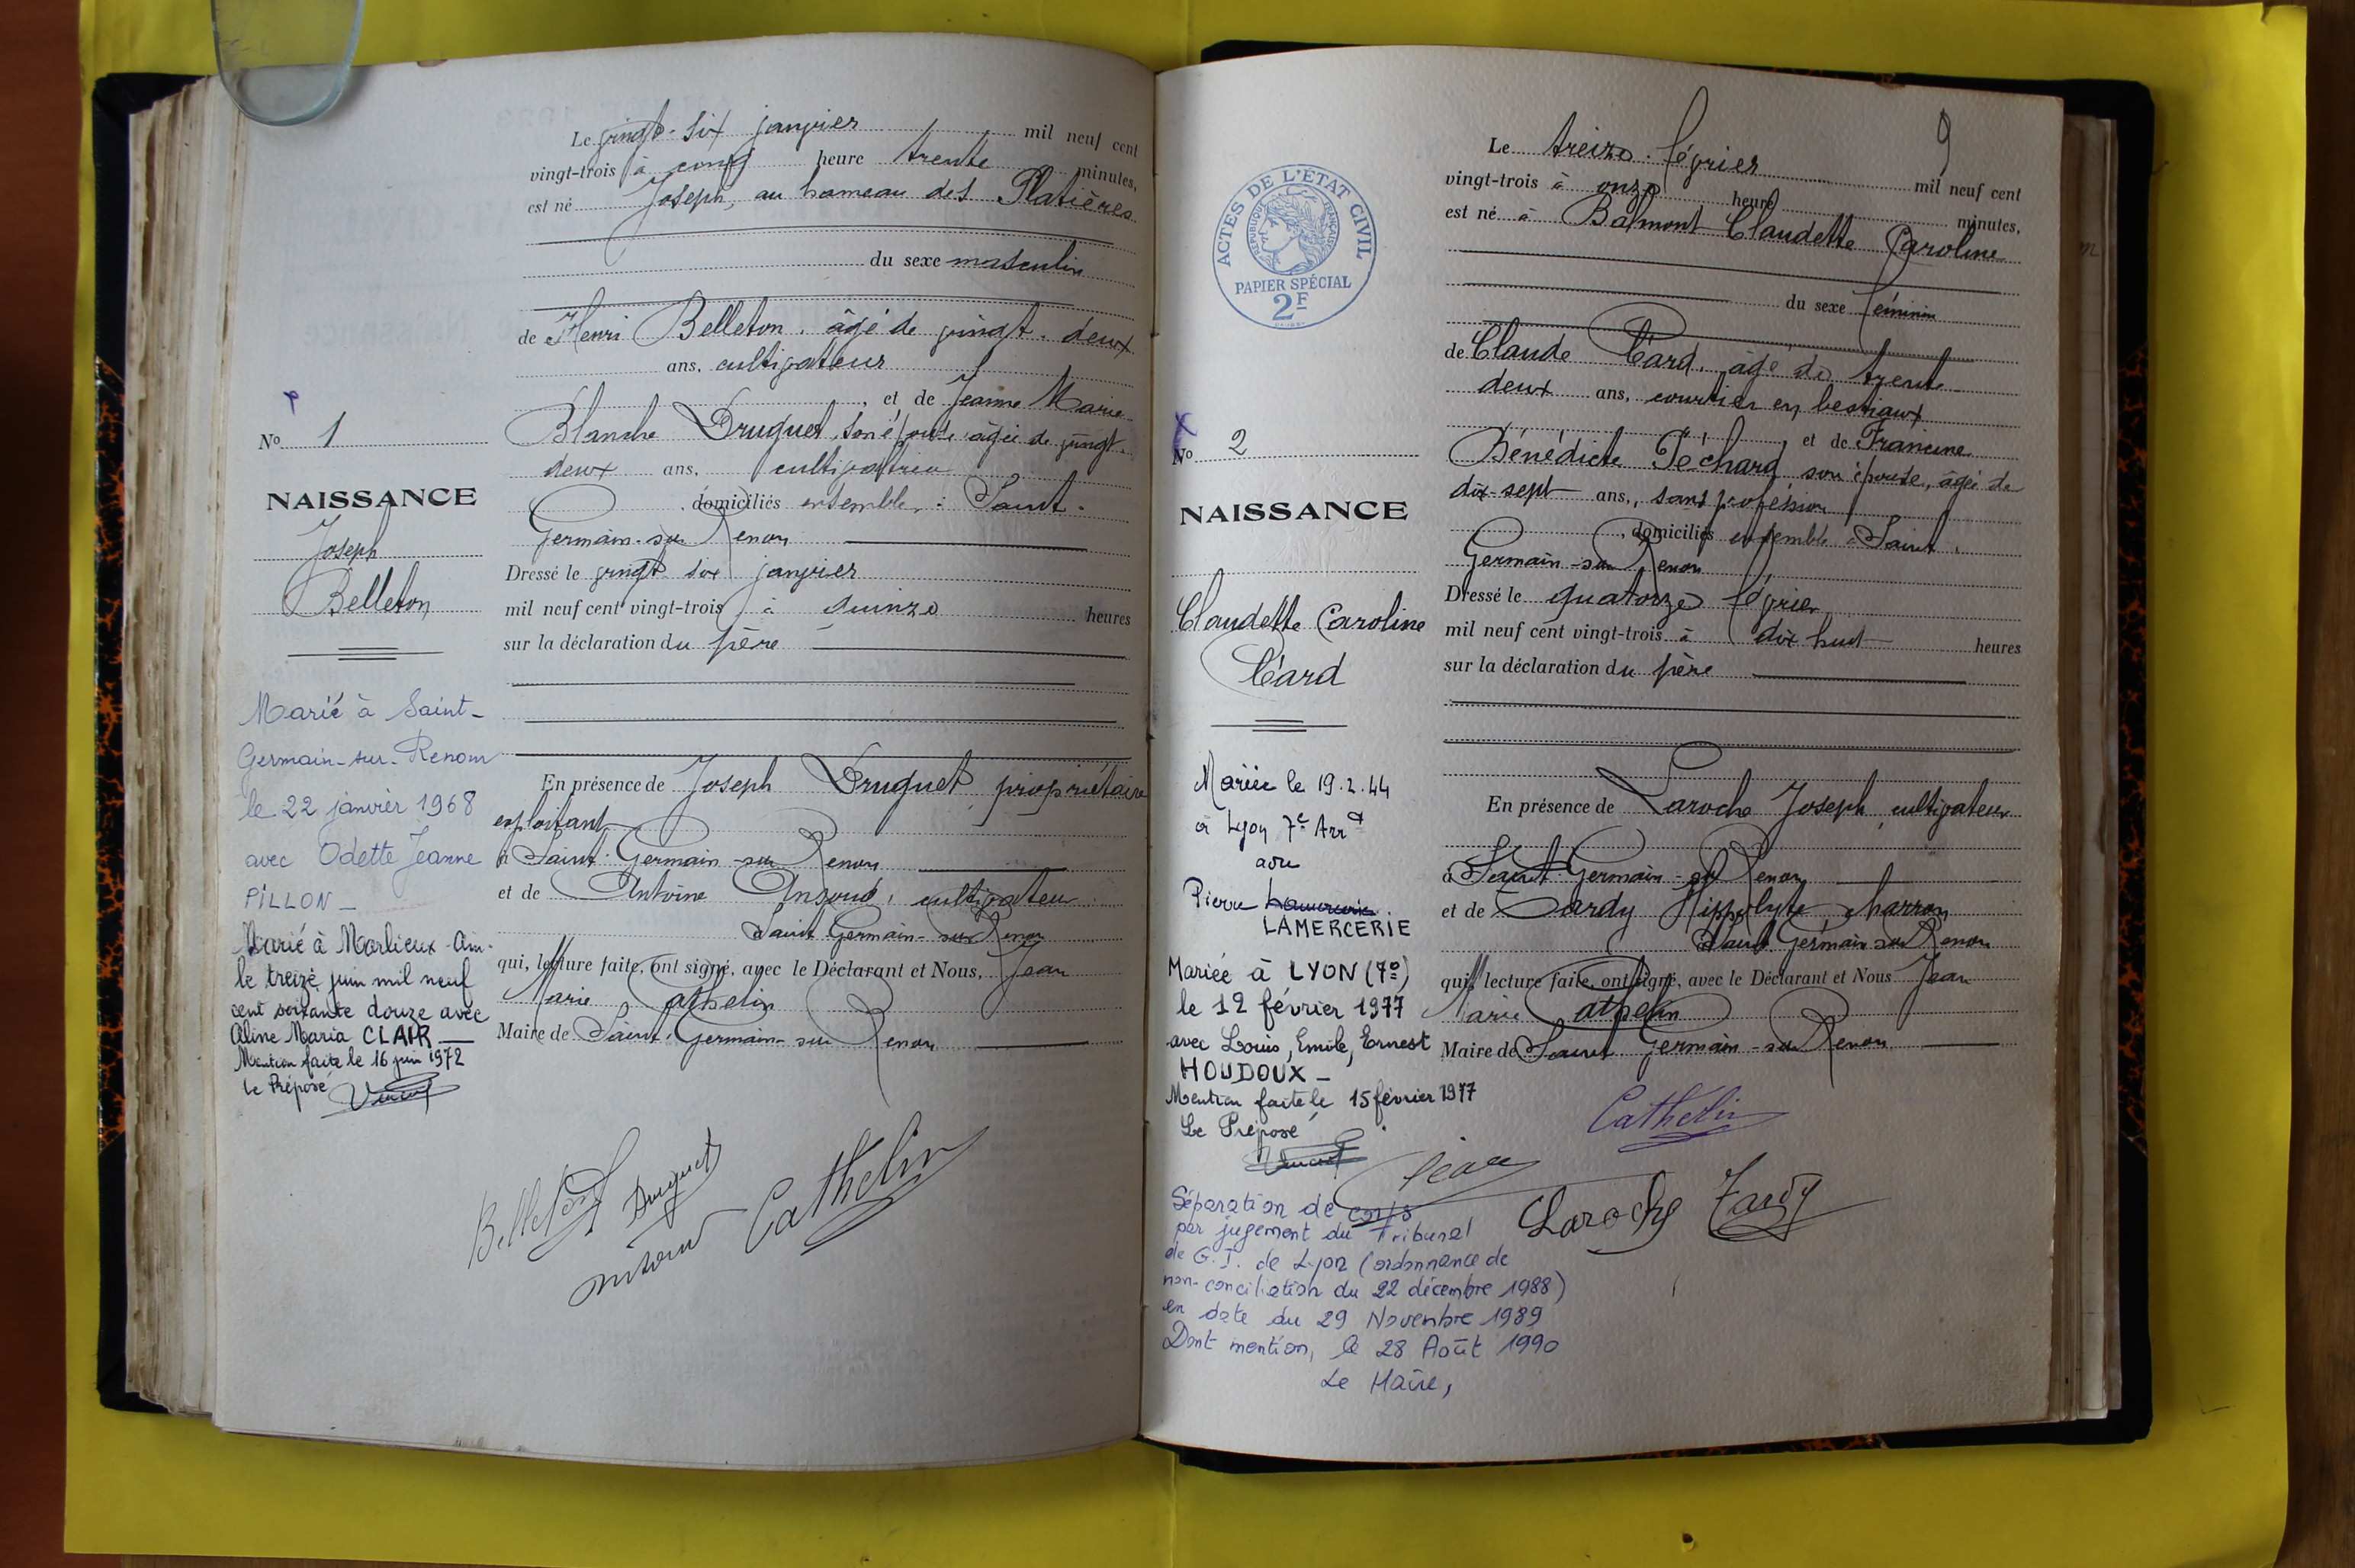 Le vingt-six janvier mil neuf cent
vingt-trois à cinq heure trente minutes,
est né Joseph, au hameau des Platières
du sexe masculin
de Henri Belleton, âgé de vingt-deux
ans, cultivateur
, et de Jeanne Marie
Blanche Druguet, son épouse âgée de vingt-
deux ans, cultivatrice
, domiciliés ensemble à Saint-
Germain-sur-Renon
Dressé le vingt-six janvier
mil neuf cent vingt-trois à quinze heures
sur la déclaration du père
En présence de Joseph Druguet, propriétaire
exploitant
à Saint-Germain-sur-Renon
et de Antoine cultivateur
Saint-Germain-sur-Renon
qui, lecture faite, ont signé, avec le Déclarant et Nous, Jean
Marie Cathelin
Maire de Saint-Germain-sur-Renon
No 1
NAISSANCE
Joseph
Belleton
Marié à Saint-
Germain-sur-Renom
le 22 janvier 1968
avec Odette Jeanne
PILLON_
Marié à Marlieux-Ain-
le treize juin mil neuf
cent soixante douze avec
Aline Maria CLAIR
Mention faite le 16 juin 1972
Le Préposé
Belleton Druguet Cathelin
9
Le treize février mil neuf cent
vingt-trois à onze heure minutes,
est né à Balmont Claudette Caroline
du sexe féminin
de Claude Céard, âgé de trente-
deux ans, courtier en bestiaux
, et de Francine
Bénédicte Péchard, son épouse, âgée de
dix-sept ans, sans profession
, domiciliés ensemble à Saint-
Germain-sur-Renon
Dressé le quatorze février
mil neuf cent vingt-trois à dix huit heures
sur la déclaration du père
En présence de Laroche Joseph, cultivateur
à Saint-Germain-sur-Renon
et de Tardy Hippolyte, charron
Saint-Germain-sur-Renon
qui, lecture faite, ont signé, avec le Déclarant et Nous Jean
Marie Cathelin
Maire de Saint-Germain-sur-Renon
ACTES DE L'ÉTAT CIVIL
RÉPUBLIQUE FRANÇAISE
PAPIER SPÉCIAL
2F
No 2
NAISSANCE
Claudette Caroline
Céard
Mariée le 19.2.44
à Lyon 7e Arrt
avec
Pierre Lamercerie
LAMERCERIE
Mariée à LYON (7e)
le 12 février 1977
avec Louis, Emile, Ernest
HOUDOUX_
Mention faite le 15 février 1977
Le Préposé
Séparation de corps
par jugement du Tribunal
de G.I. de Lyon (ordonnance de
non-conciliation du 22 décembre 1988)
en date du 29 Novembre 1989
Dont mention, le 28 Août 1990
Le Maire,
Cathelin
Céard
Laroche Tardy